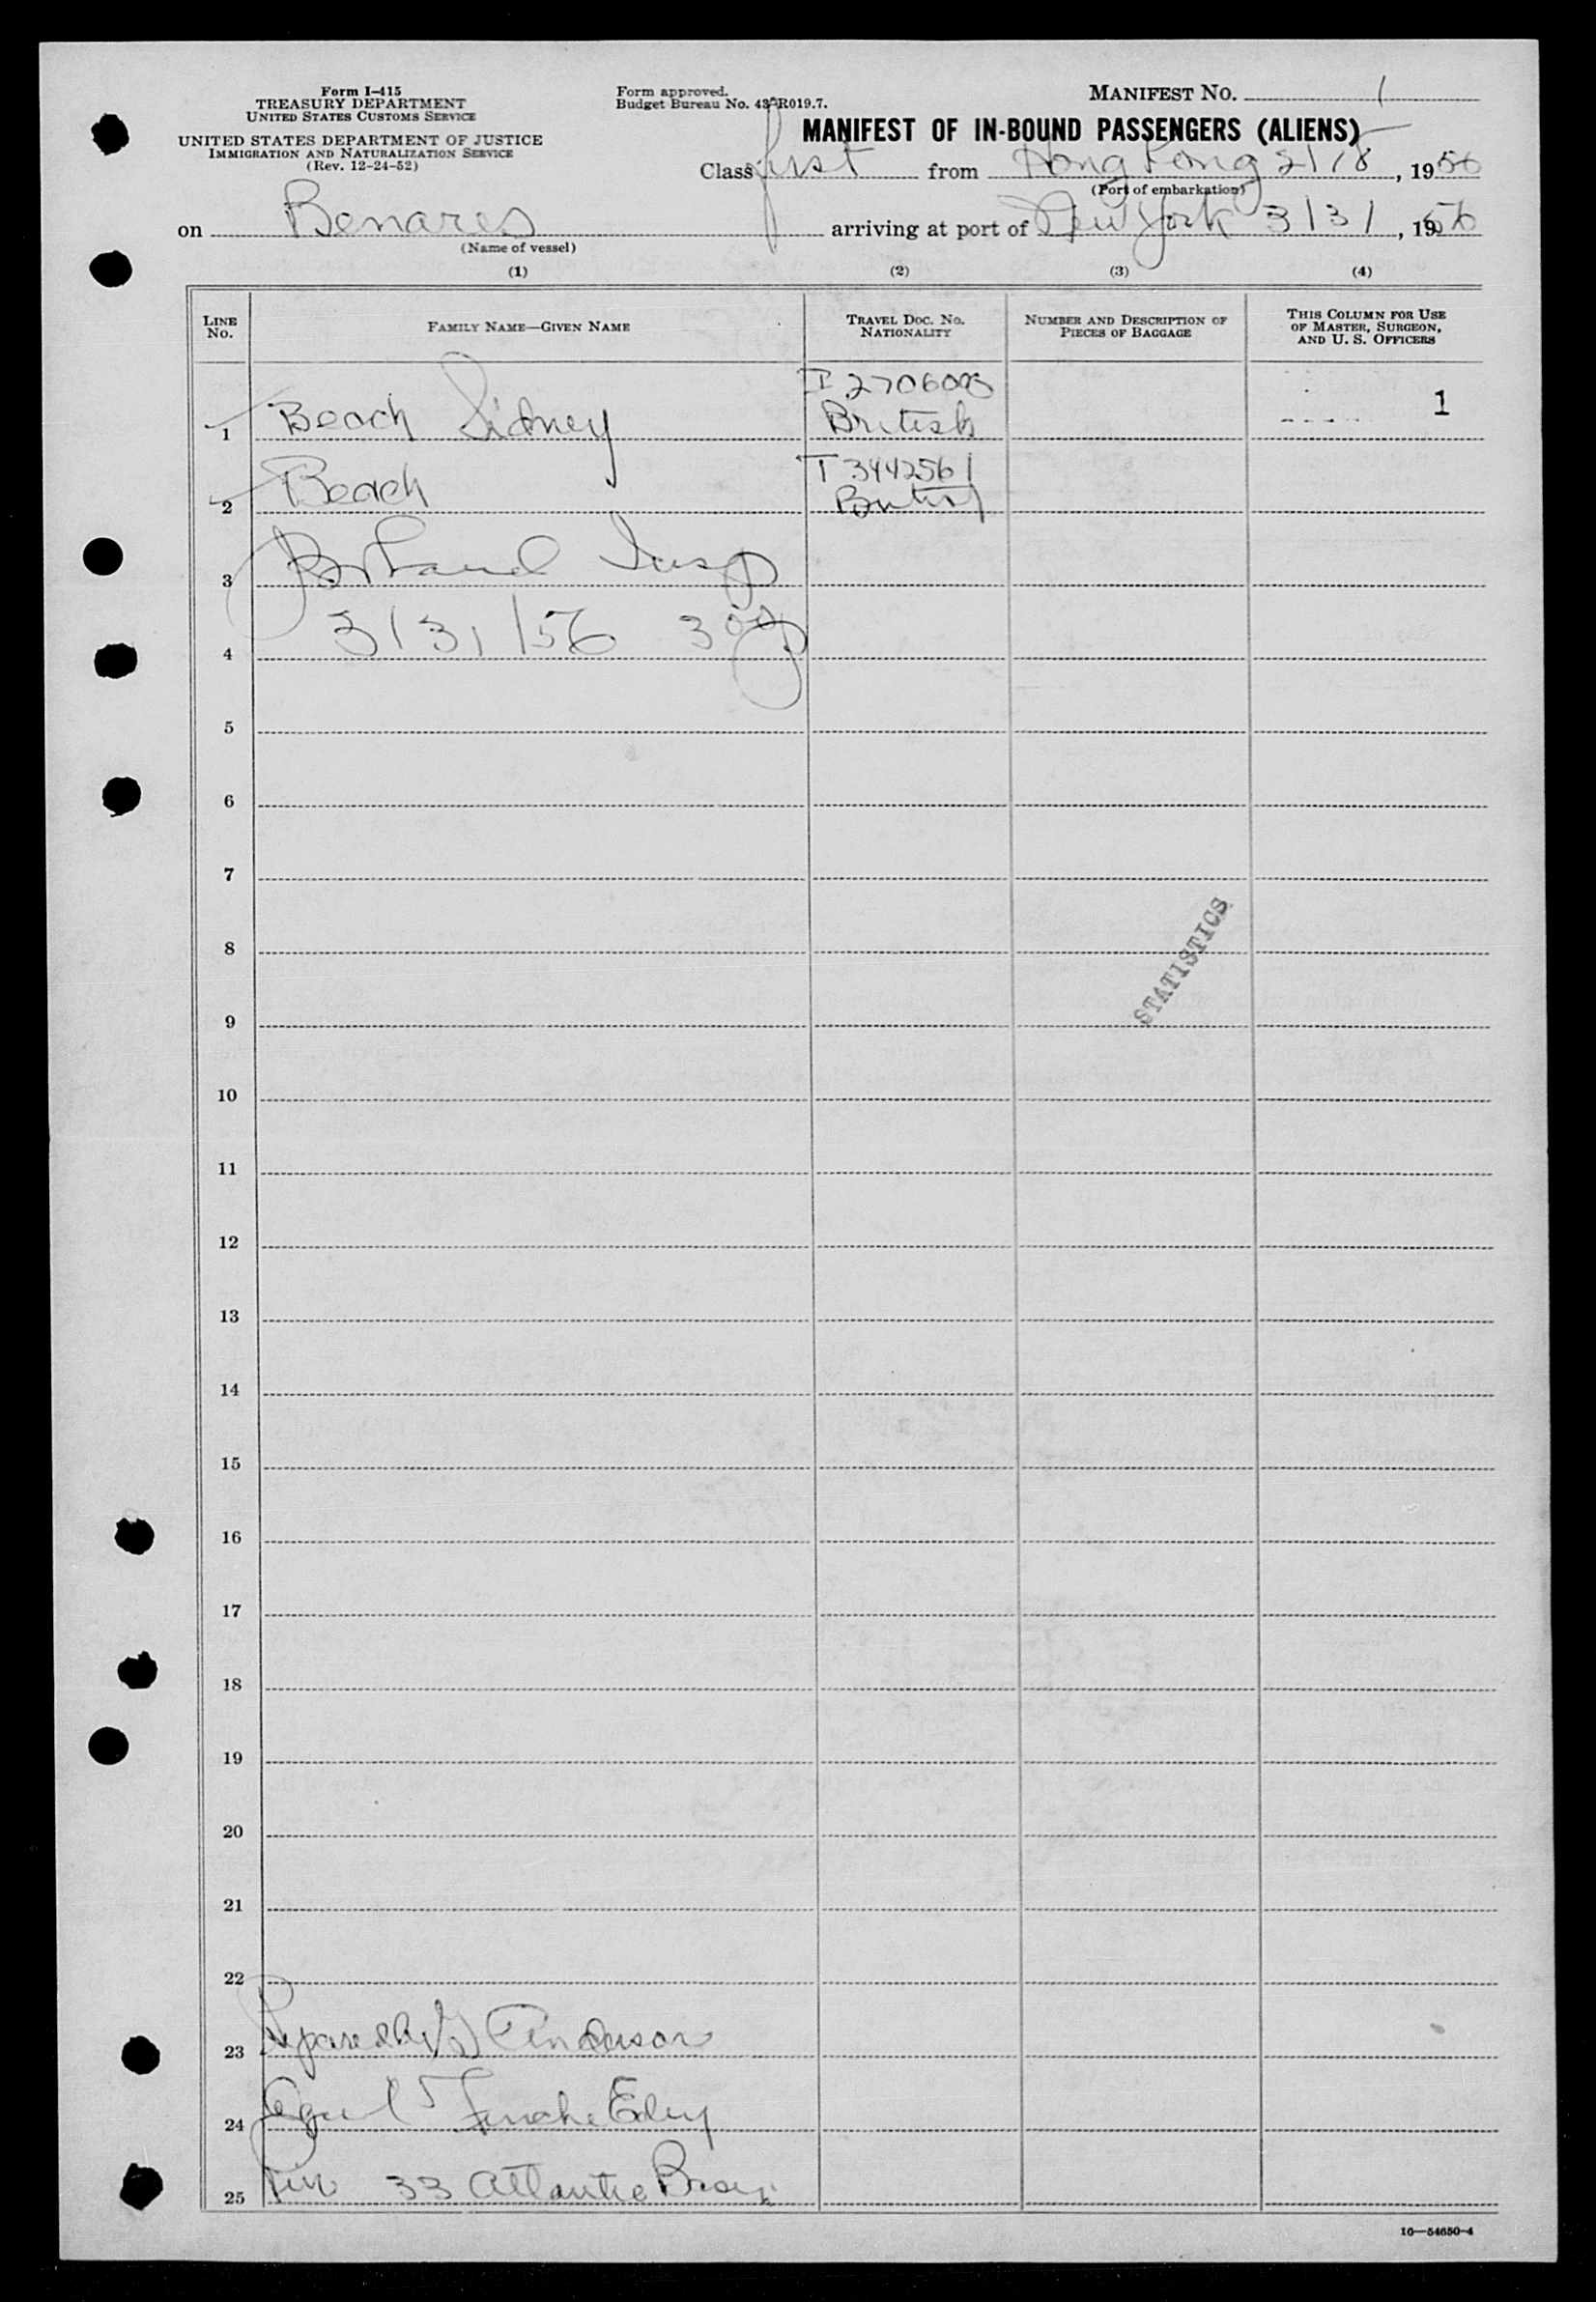 Form I-415
TREASURY DEPARTMENT
UNITED STATES CUSTOMS SERVICE
UNITED STATES DEPARTMENT OF JUSTICE
IMMIGRATION AND NATURALIZATION SERVICE
(Rev. 12-24-52)
Form approved.
Budget Bureau No. 43-R019.7.
MANIFEST NO. 1
MANIFEST OF IN-BOUND PASSENGERS (ALIENS)
Class first from Hong Kong 2/18, 1956
(Port of embarkation)
on Benares arriving at port of New York 3/31, 1956
(Name of vessel)
(1) (2) (3) (4)
LINE No. FAMILY NAME—GIVEN NAME TRAVEL DOC. NO. NATIONALITY NUMBER AND DESCRIPTION OF PIECES OF BAGGAGE THIS COLUMN FOR USE OF MASTER, SURGEON, AND U. S. OFFICERS
1 Beach Sidney British 1
2 Beach 3442561 British
3 Insp
4 3/31/56
5
6
7
8
STATISTICS
9
10
11
12
13
14
15
16
17
18
19
20
21
22
23 Prepared by Anderson
24 Agent Funche Edey
25 Pier 33 Atlantic
16—54650-4